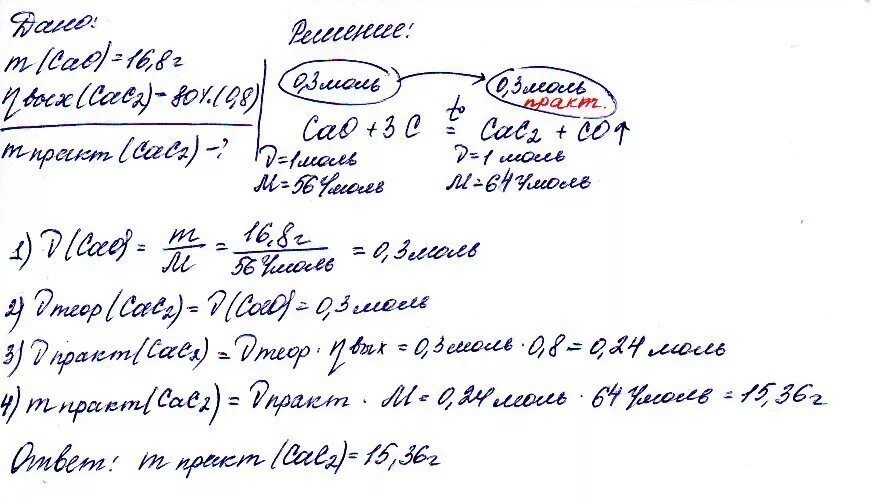 Дано:
Решение:
m(CaO)=16,8г
ηвых(CaC₂)=80%(0,8)
mпракт(CaC₂)-?
0,3моль
0,3моль
практ.
CaO+3C t° = CaC₂+CO↑
ν=1моль
ν=1моль
M=56г/моль
M=64г/моль
1) ν(CaO) = m/M = 16,8г/56г/моль = 0,3моль
2) νтеор(CaC₂)=ν(CaO)=0,3моль
3) νпракт(CaC₂)=νтеор·ηвых=0,3моль·0,8=0,24моль
4) mпракт(CaC₂)=νпракт·M=0,24моль·64г/моль=15,36г
Ответ: mпракт(CaC₂)=15,36г